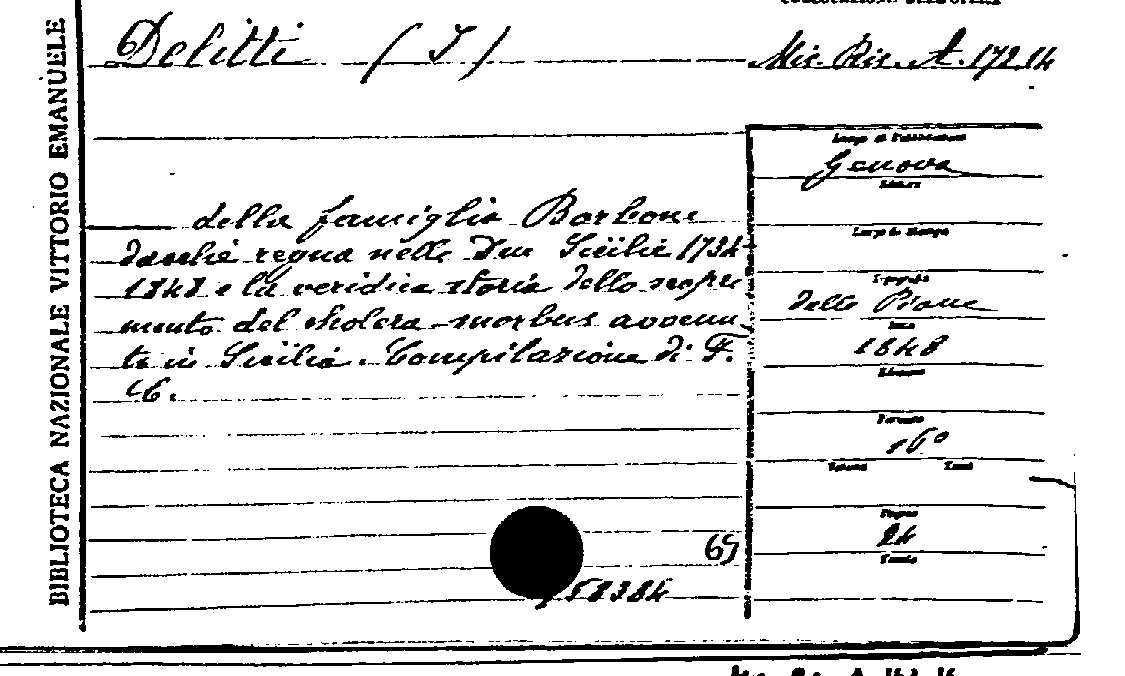 BIBLIOTECA NAZIONALE VITTORIO EMANUELE
Delitti (I)
Mis. Ris. A. 172.14
della famiglia Borbone
dacchè regna nelle Due Sicilie 1734
1848 e la veridica storia dello scopri
mento del cholera-morbus avvenu
to in Sicilia. Compilazione di F.
C.
69
58384
Luogo di Pubblicazione
Genova
Editore
Luogo di stampa
Tipografia
delle Piane
Anno
1848
Edizione
Formato
16°
Volumi
Tomi
Pagine
24
Tavole